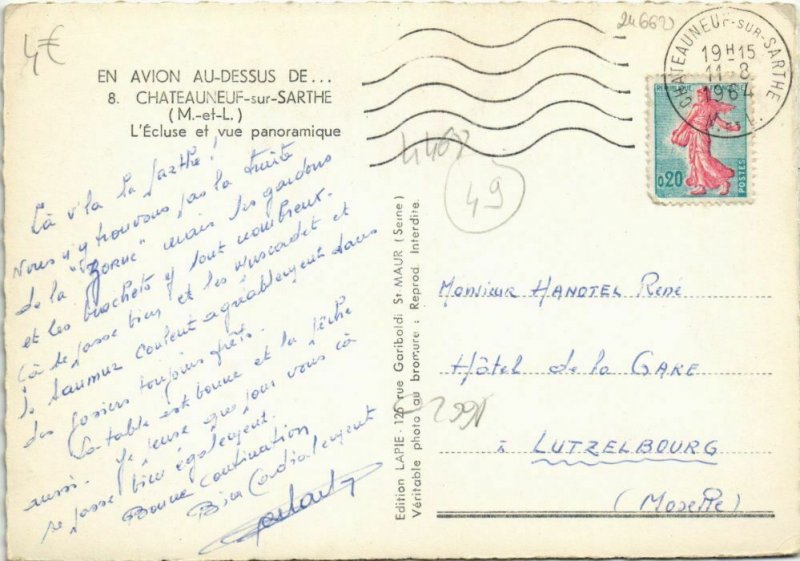 4€
EN AVION AU-DESSUS DE...
8. CHATEAUNEUF-sur-SARTHE
(M.-et-L.)
L'Écluse et vue panoramique
Là v'la la Sarthe !
Nous n'y trouvons pas la truite
de la "Zorne" mais les gardons
et les brochets y sont nombreux.
Cà se passe bien et les Muscadet et
le Saumur coulent agréablement dans
des gosiers toujours prêts.
La table est bonne et la pêche
aussi. Je pense que pour vous cà
se passe bien également.
Bonne continuation
Bien Cordialement
Edition LAPIE - 125 rue Garibaldi St MAUR (Seine)
Véritable photo au bromure : Reprod. Interdite.
CHATEAUNEUF-SUR-SARTHE
19H15
11-8
1964
M.-et-L.
0,20
POSTES
49
Monsieur HANOTEL René
Hôtel de la GARE
à LUTZELBOURG
(Moselle)